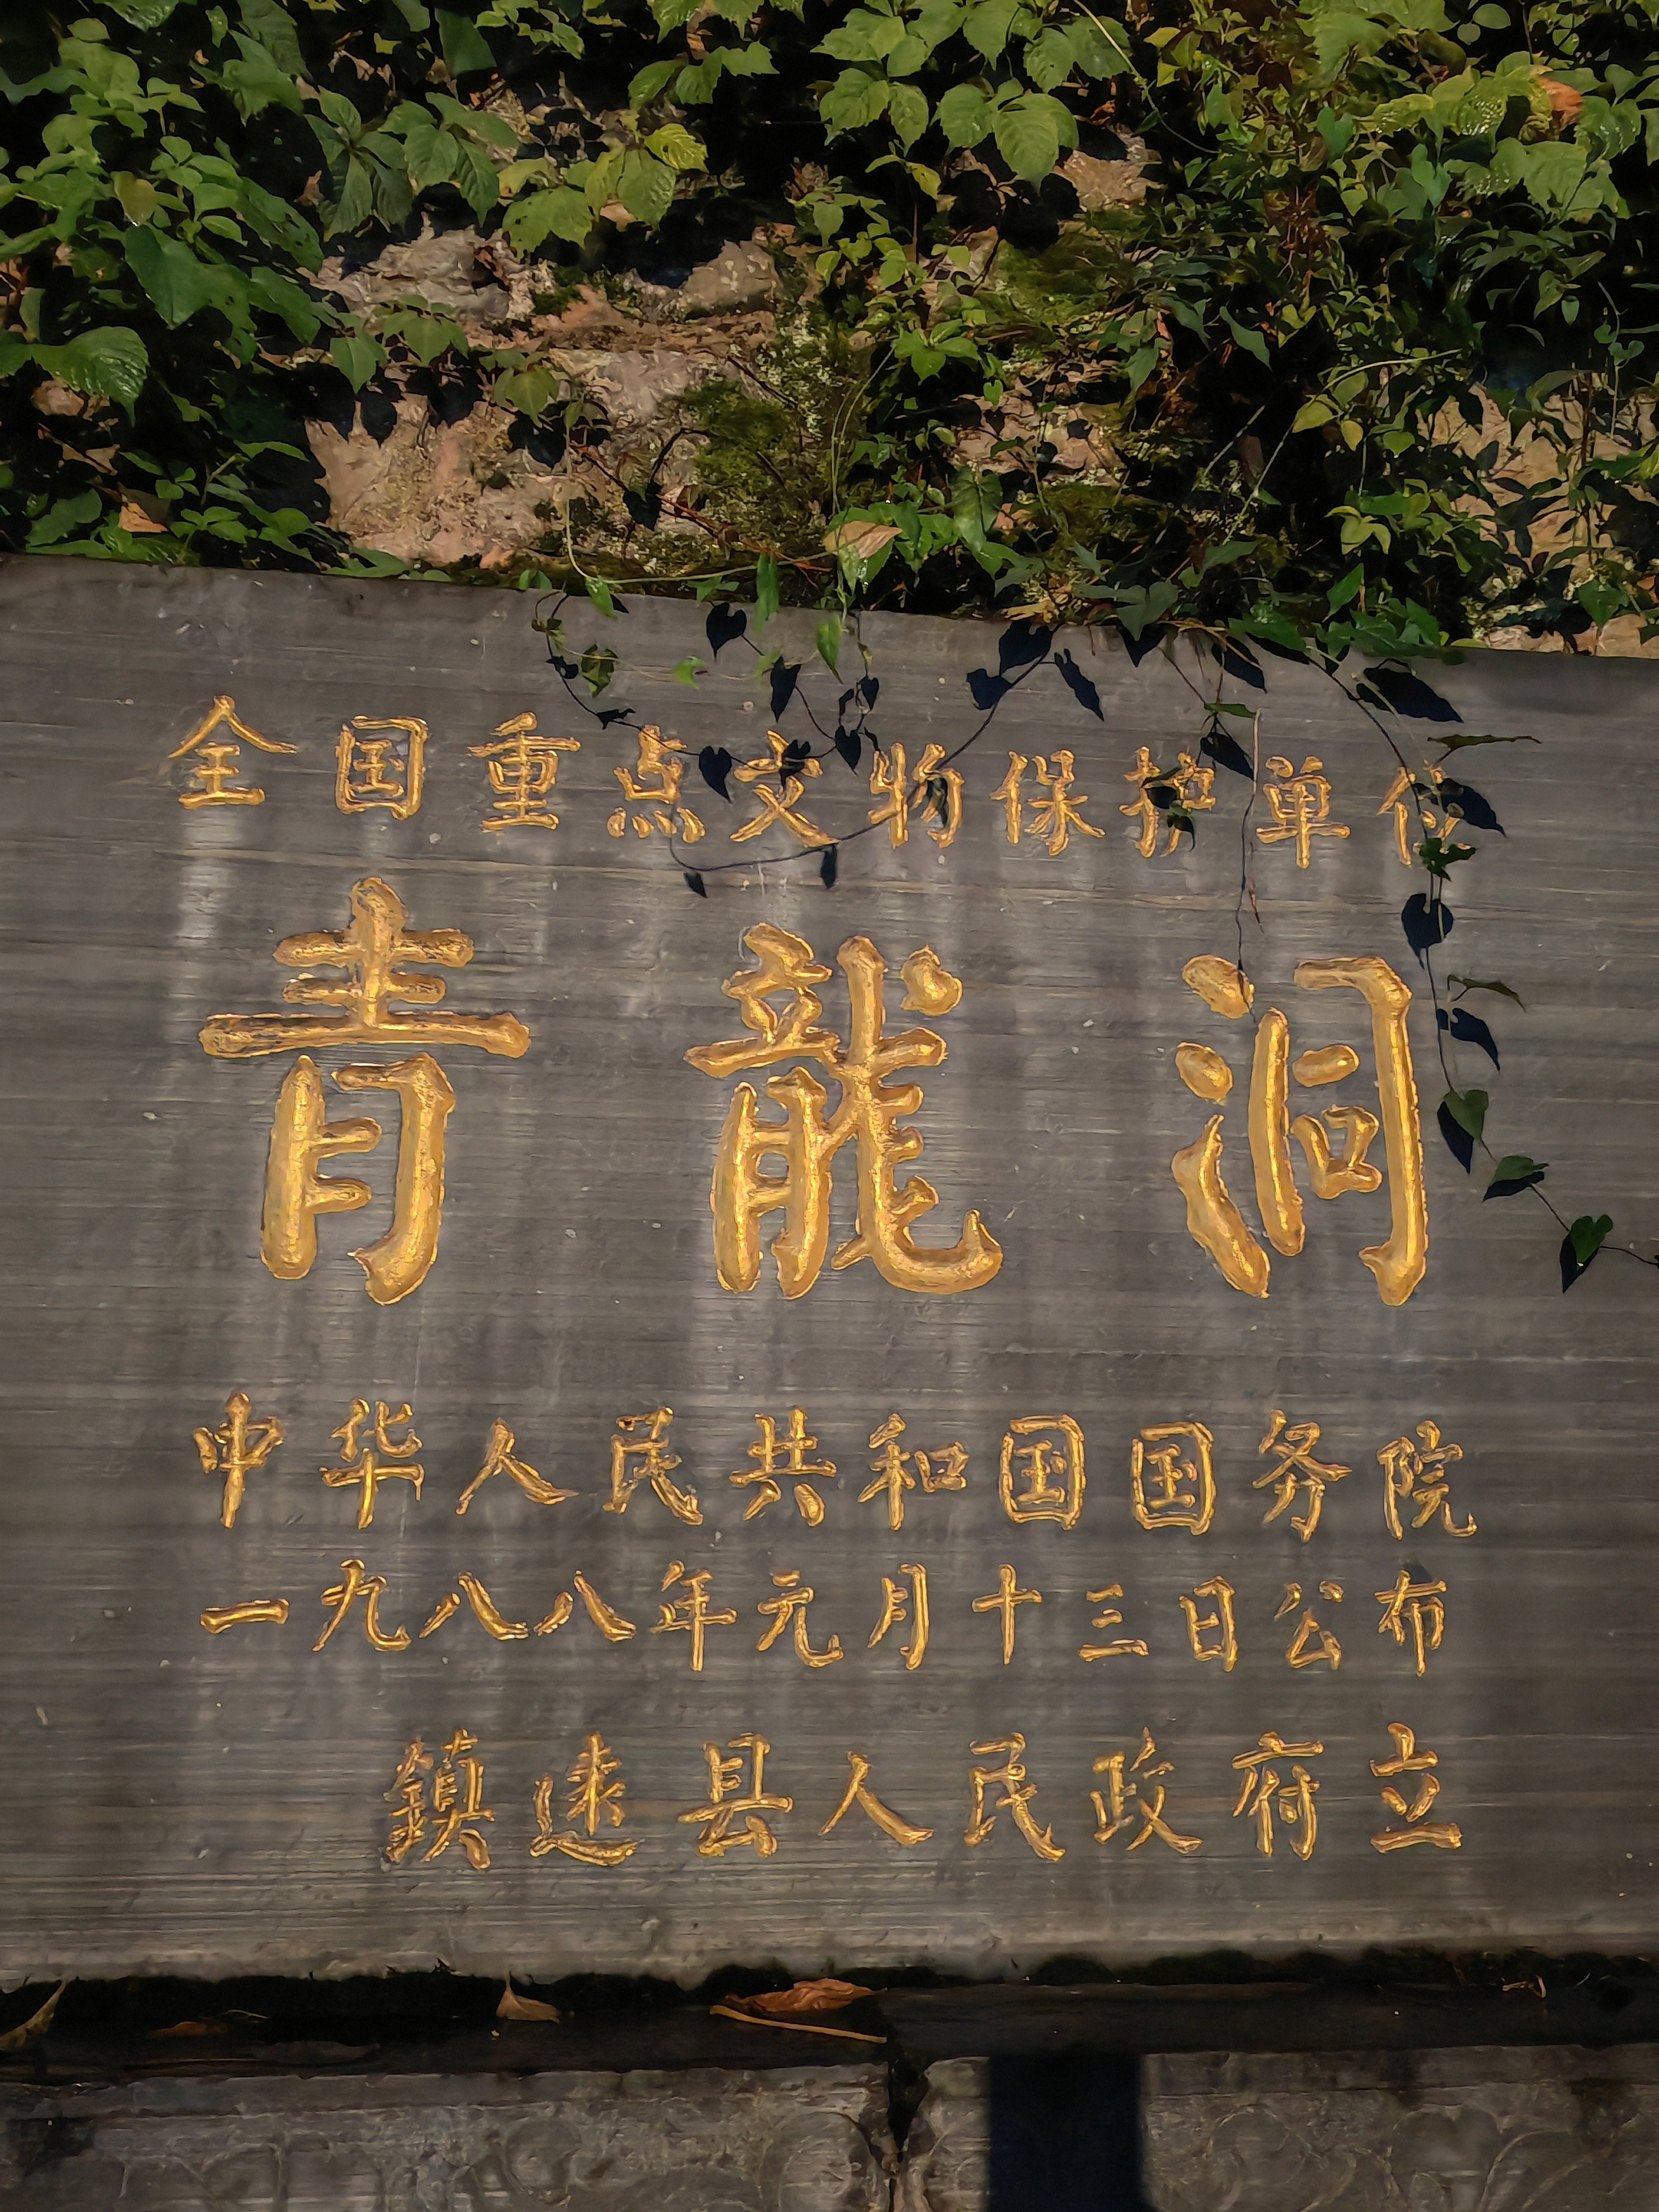 全国重点文物保护单位
青龍洞
中华人民共和国国务院
一九八八年元月十三日公布
鎮远县人民政府立